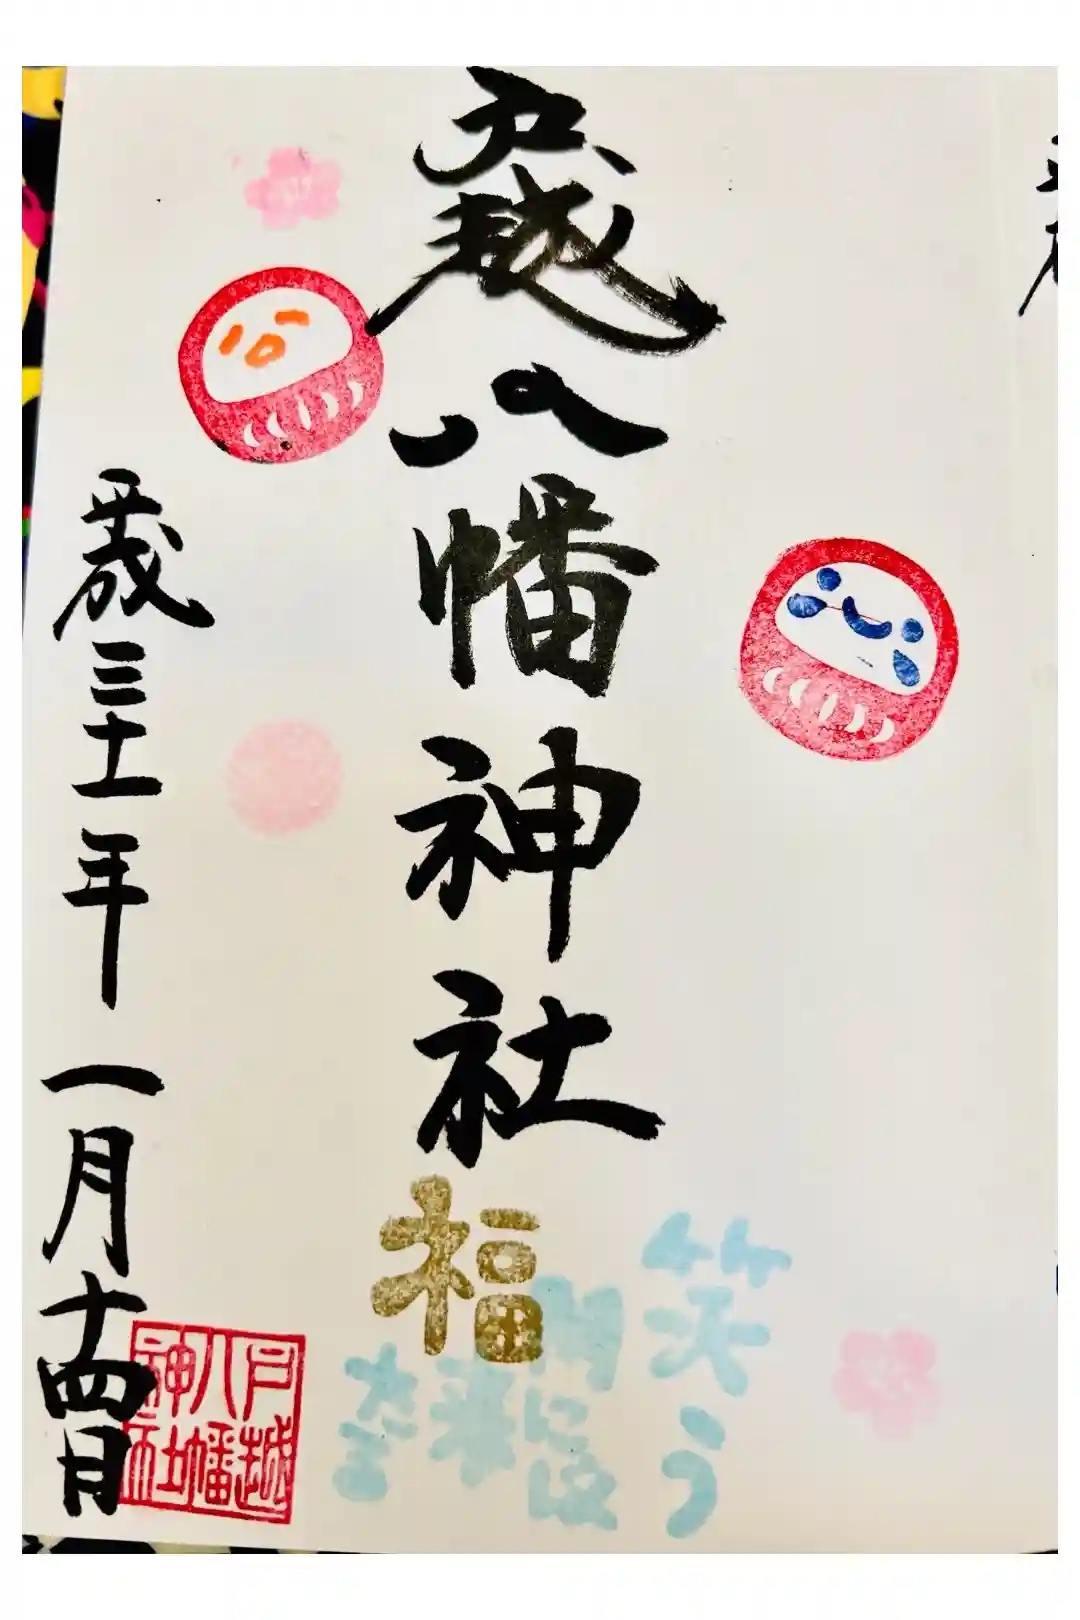 戸越八幡神社
笑う
門には
福
来る
平成三十一年一月十四日
戸越
八幡
神社